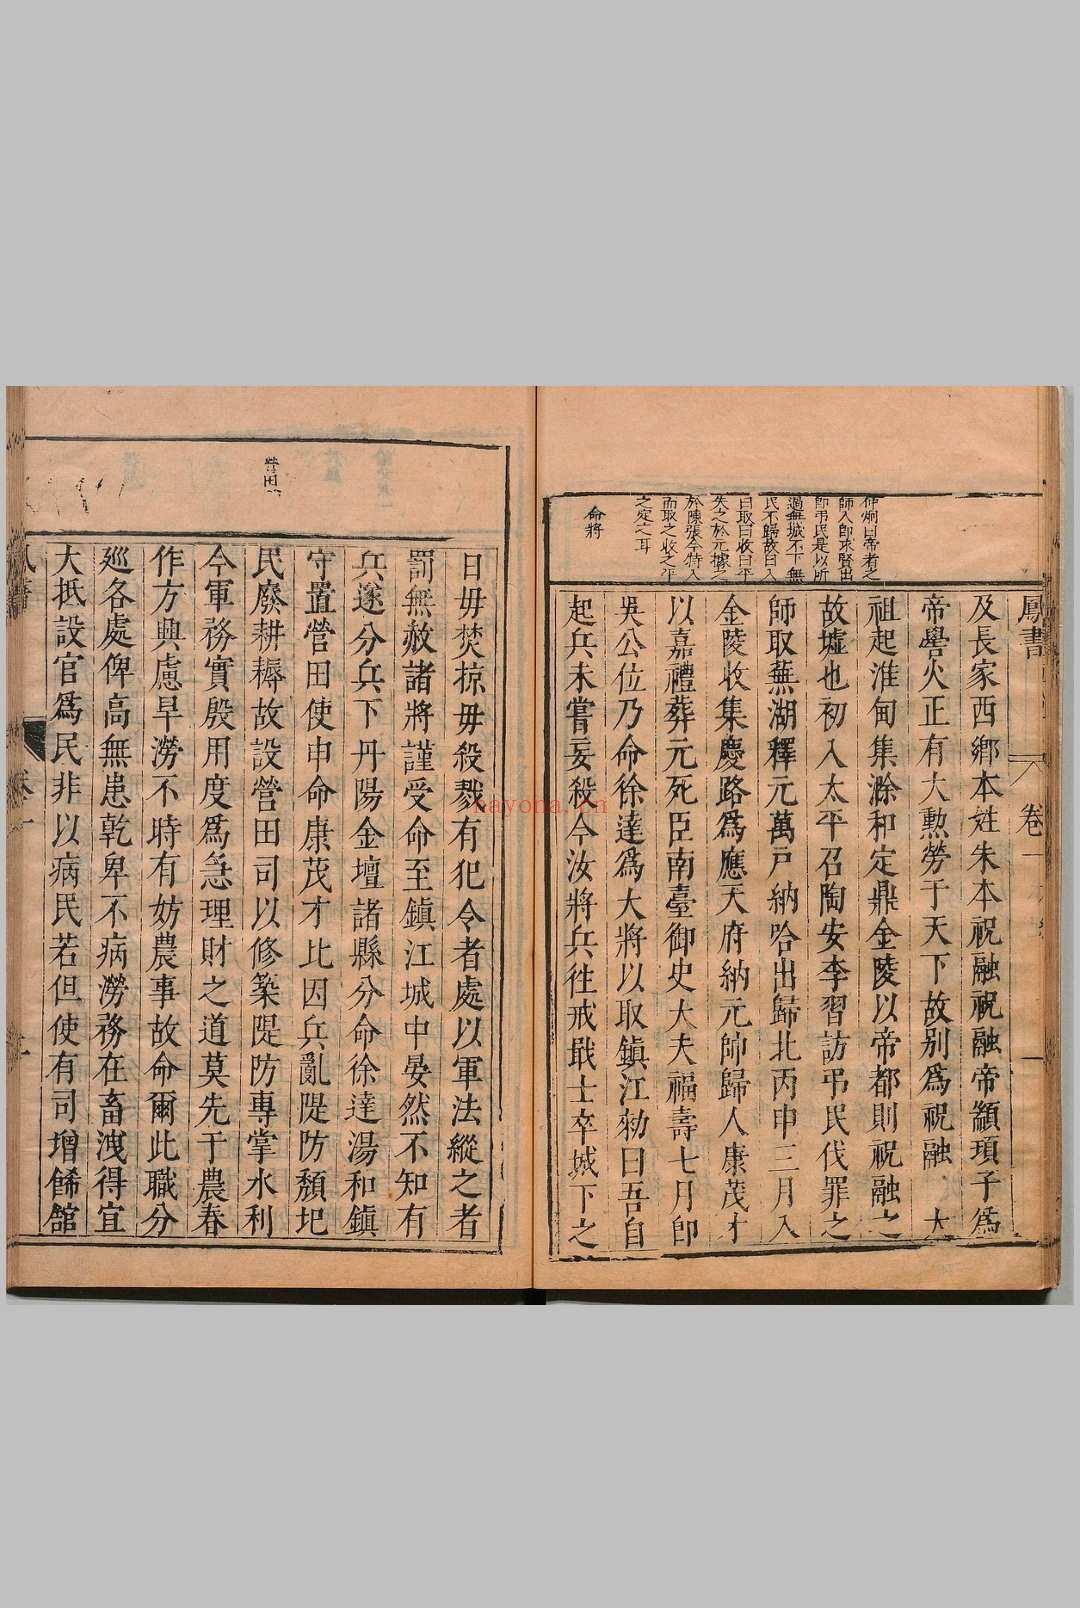 鳳書
卷一
仲炯曰帝者之
師入卽求賢出
卽弔民是以所
過無城不下無
民不歸故曰入
曰取曰收曰平
失之於元據之
於陳張今特入
而取之收之平
之定之耳
命將
及長家西鄉本姓朱本祝融祝融帝顓頊子爲
帝嚳火正有大勲勞于天下故别爲祝融 大
祖起淮甸集滁和定鼎金陵以帝都則祝融之
故墟也初入太平召陶安李習訪弔民伐罪之
師取蕪湖釋元萬戶納哈出歸北丙申三月入
金陵收集慶路爲應天府納元帥歸人康茂才
以嘉禮葬元死臣南臺御史大夫福壽七月卽
吳公位乃命徐達爲大將以取鎮江勑曰吾自
起兵未嘗妄殺今汝將兵徃戒戢士卒城下之
日毋焚掠毋殺戮有犯令者處以軍法縱之者
罰無赦諸將謹受命至鎮江城中晏然不知有
兵遂分兵下丹陽金壇諸縣分命徐達湯和鎮
營田
守置營田使申命康茂才比因兵亂隄防頽圯
民廢耕耨故設營田司以修築隄防專掌水利
今軍務實殷用度爲急理財之道莫先于農春
作方興慮旱澇不時有妨農事故命爾此職分
廵各處俾高無患乾卑不病澇務在畜洩得宜
大抵設官爲民非以病民若但使有司增餙舘